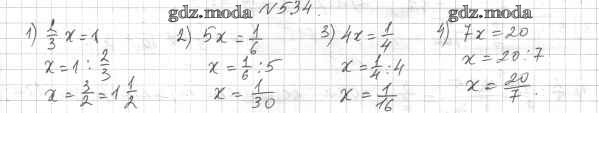 gdz.moda №534. gdz.moda
1) 2/3 x = 1
x = 1 : 2/3
x = 3/2 = 1 1/2
2) 5x = 1/6
x = 1/6 : 5
x = 1/30
3) 4x = 1/4
x = 1/4 : 4
x = 1/16
4) 7x = 20
x = 20 : 7
x = 20/7.